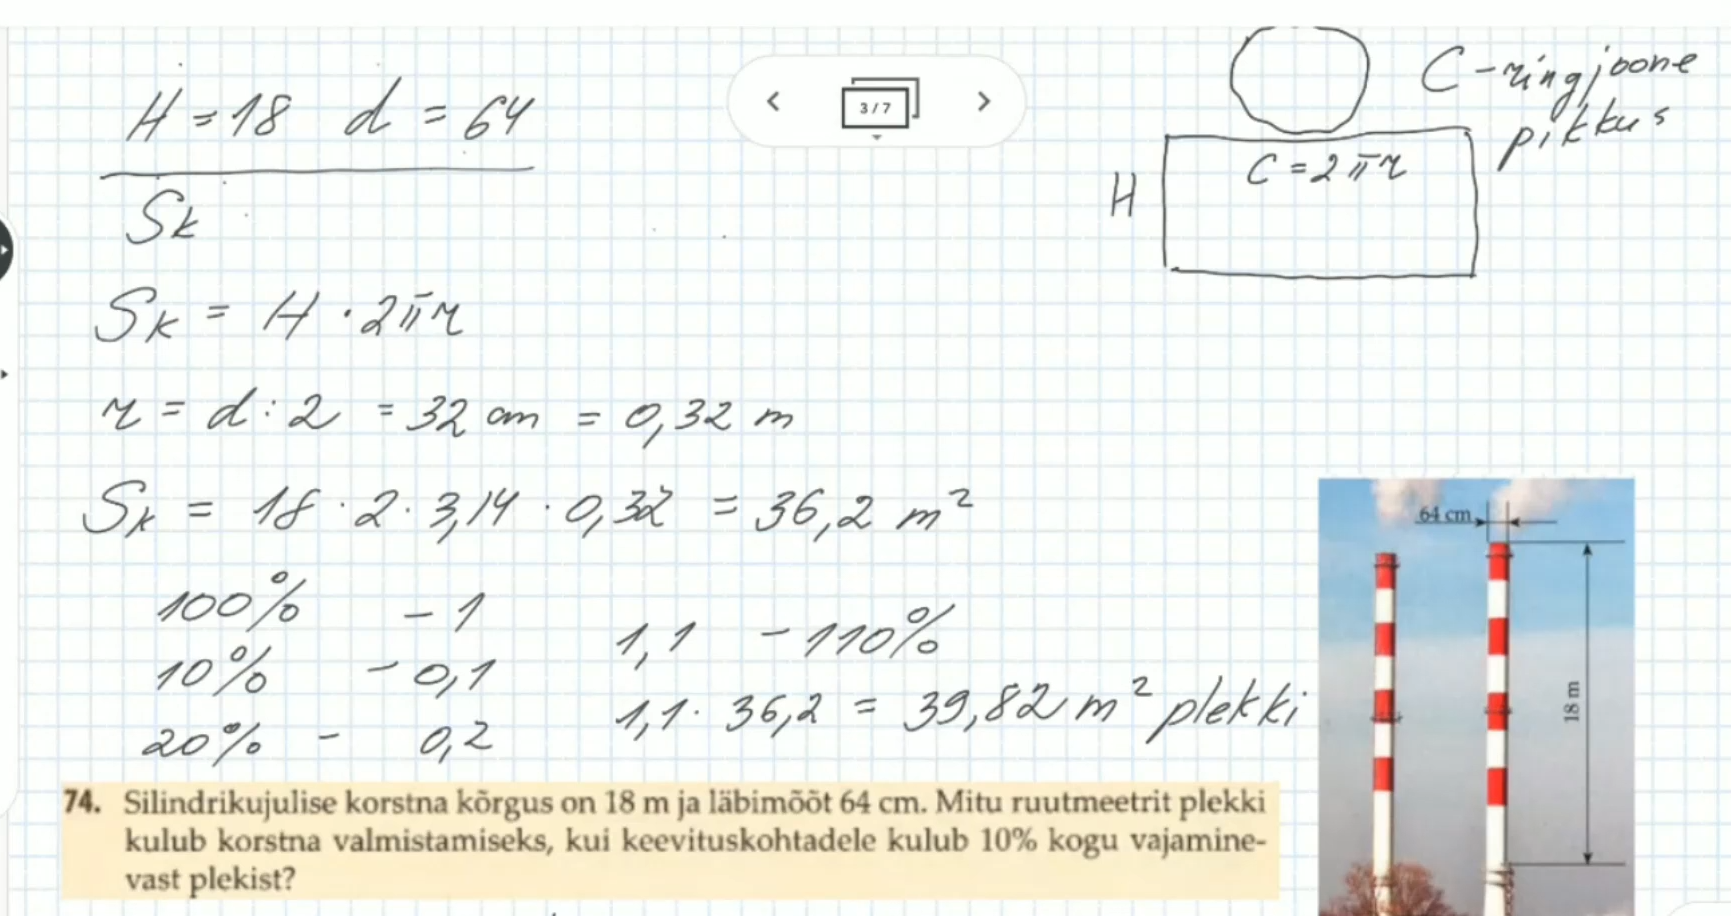 H = 18 d = 64
Sk
3 / 7
C - ringjoone
pikkus
C = 2πr
H
Sk = H · 2πr
r = d : 2 = 32 cm = 0,32 m
Sk = 18 · 2 · 3,14 · 0,32 = 36,2 m²
100% - 1
10% - 0,1
20% - 0,2
1,1 - 110%
1,1 · 36,2 = 39,82 m² plekki
64 cm
18 m
74. Silindrikujulise korstna kõrgus on 18 m ja läbimõõt 64 cm. Mitu ruutmeetrit plekki
kulub korstna valmistamiseks, kui keevituskohtadele kulub 10% kogu vajamine-
vast plekist?